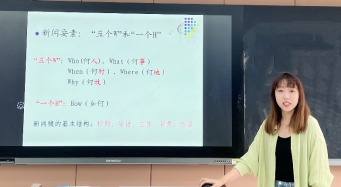 新闻要素：“五个W”和“一个H”
“五个W”：Who(何人)、What（何事）
When（何时）、Where（何地）
Why（何故）
“一个H”：How（如何）
新闻稿的基本结构：标题、导语、主体、背景、结语